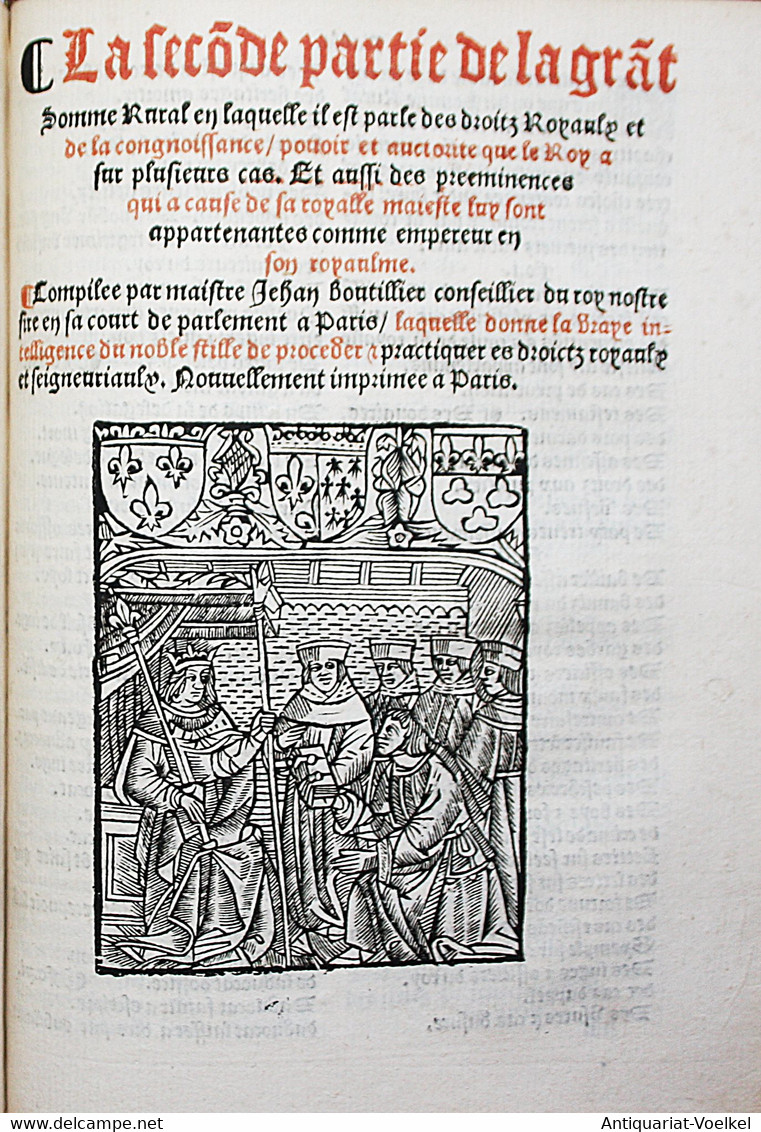 ¶ La secõde partie de la grãt
Somme Rural en laquelle il est parle des droitz Royaulx et
de la congnoissance/ pouoir et auctorite que le Roy a
sur plusieurs cas. Et aussi des preeminences
qui a cause de sa royalle maieste luy sont
appartenantes comme empereur en
son royaulme.
¶ Compilee par maistre Jehan Boutillier conseillier du roy nostre
sire en sa court de parlement a Paris/ laquelle donne la vraye in-
telligence du noble stille de proceder ⁊ practiquer es droictz royaulx
et seigneuriaulx. Nouuellement imprimee a Paris.
delcampe.net
Antiquariat-Voelkel